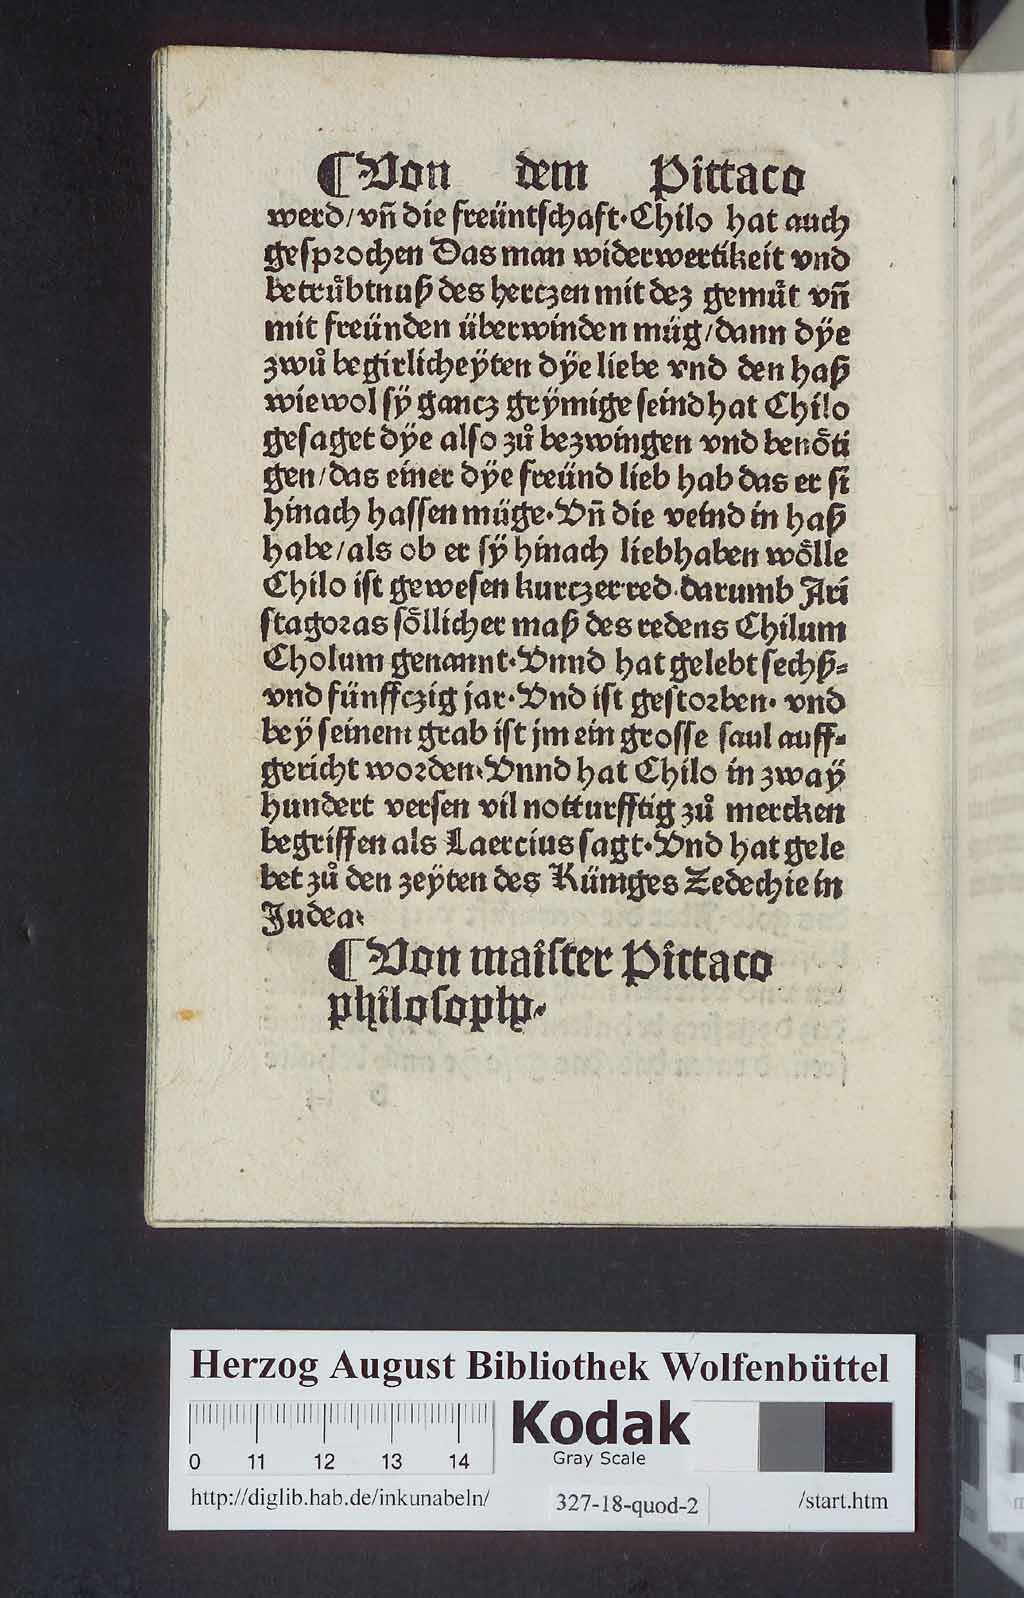 ¶ Von dem Pittaco
werd/ vn̄ die freüntschaft. Chilo hat auch
gesprochen Das man widerwertikeit vnd
betruͤbtnuß des hertczen mit dez gemuͤt vn̄
mit freünden überwinden müg/ dann dÿe
zwuͦ begirlicheÿten dÿe liebe vnd den haß
wiewol sÿ gancz grÿmige seind hat Chilo
gesaget dÿe also zuͦ bezwingen vnd benoͤti
gen/ das einer dÿe freünd lieb hab das er si
hinach hassen müge. Vn̄ die veind in haß
habe/ als ob er sÿ hinach liebhaben woͤlle
Chilo ist gewesen kurczer red. darumb Ari
stagoras soͤllicher maß des redens Chilum
Cholum genannt. Vnnd hat gelebt sechß-
vnd fünffczig jar. Vnd ist gestorben. vnd
beÿ seinem grab ist jm ein grosse saul auff-
gericht worden. Vnnd hat Chilo in zwaÿ
hundert versen vil notturfftig zuͦ mercken
begriffen als Laercius sagt. Vnd hat gele
bet zuͦ den zeÿten des Küniges Zedechie in
Judea.
¶ Von maister Pittaco
philosopho.
Herzog August Bibliothek Wolfenbüttel
0 11 12 13 14
Kodak
Gray Scale
http://diglib.hab.de/inkunabeln/ 327-18-quod-2 /start.htm